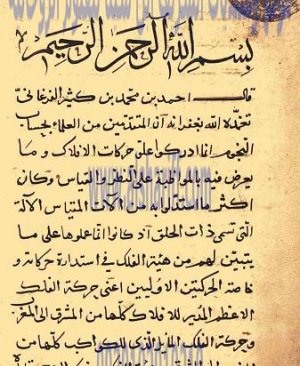 بسم الله الرحمن الرحيم
قال احمد بن محمد بن كثير الفرغاني
تغمده الله بغفرانه ان المتقدمين من العلماء بحساب
النجوم انما ادركوا علم حركات الافلاك وما
يعرض فيه بالمواظبة على النظر والقياس وكان
اكثر ما استدلوا به من الآت المقياس الآلة
التى تسمى ذات الحلق اذ كانوا انما عملوها على ما
يتبين لهم من هيئة الفلك فى استدارة حركاته و
خاصة الحركتين الاوليين اعنى حركة الفلك
الاعظم المدير للافلاك كلها من المشرق الى المغرب
وحركة الفلك المايل الذى للكواكب كلها من